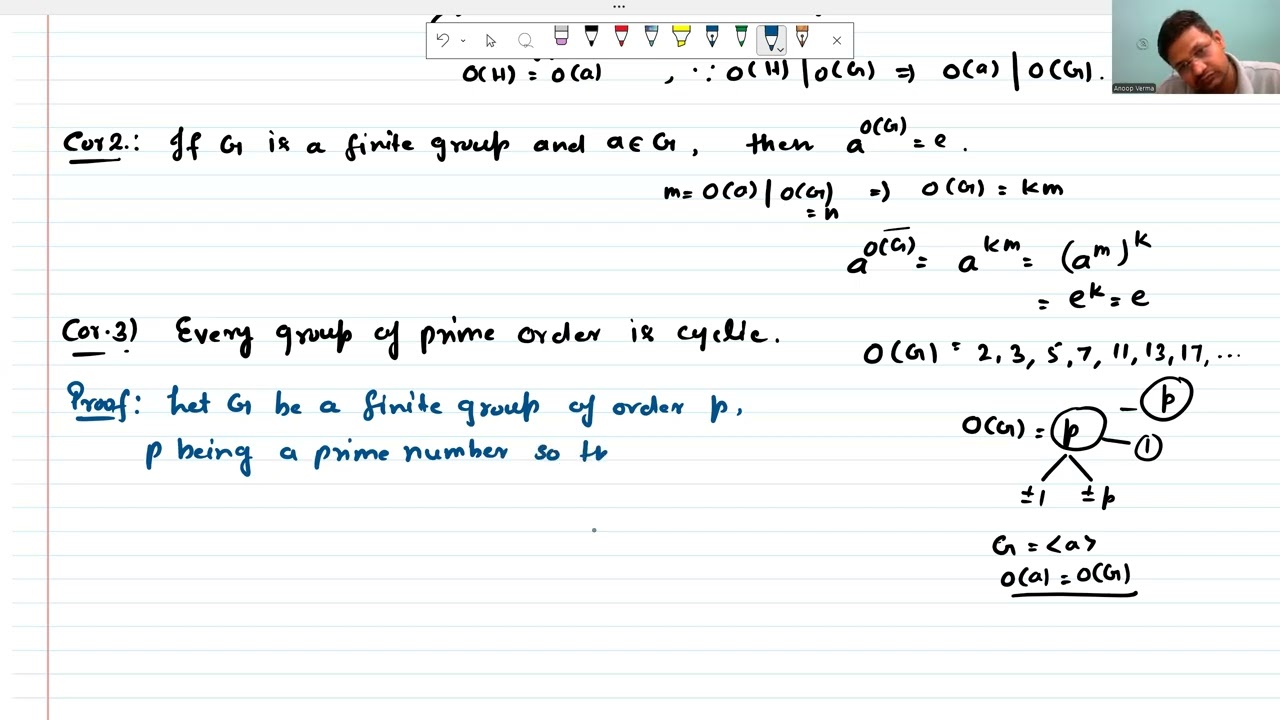 O(H) = O(a) , ∵ O(H) | O(G) ⇒ O(a) | O(G).
Anoop Verma
Cor 2.: If G is a finite group and a ∈ G, then a^O(G) = e.
m = O(O) | O(G) ⇒ O(G) = km
= n
a^O(G) = a^km = (a^m)^k
= e^k = e
Cor. 3) Every group of prime order is cyclic.
O(G) = 2, 3, 5, 7, 11, 13, 17, ...
Proof: Let G be a finite group of order p,
p
O(G) = p
1
p being a prime number so th
±1 ±p
G = <a>
O(a) = O(G)